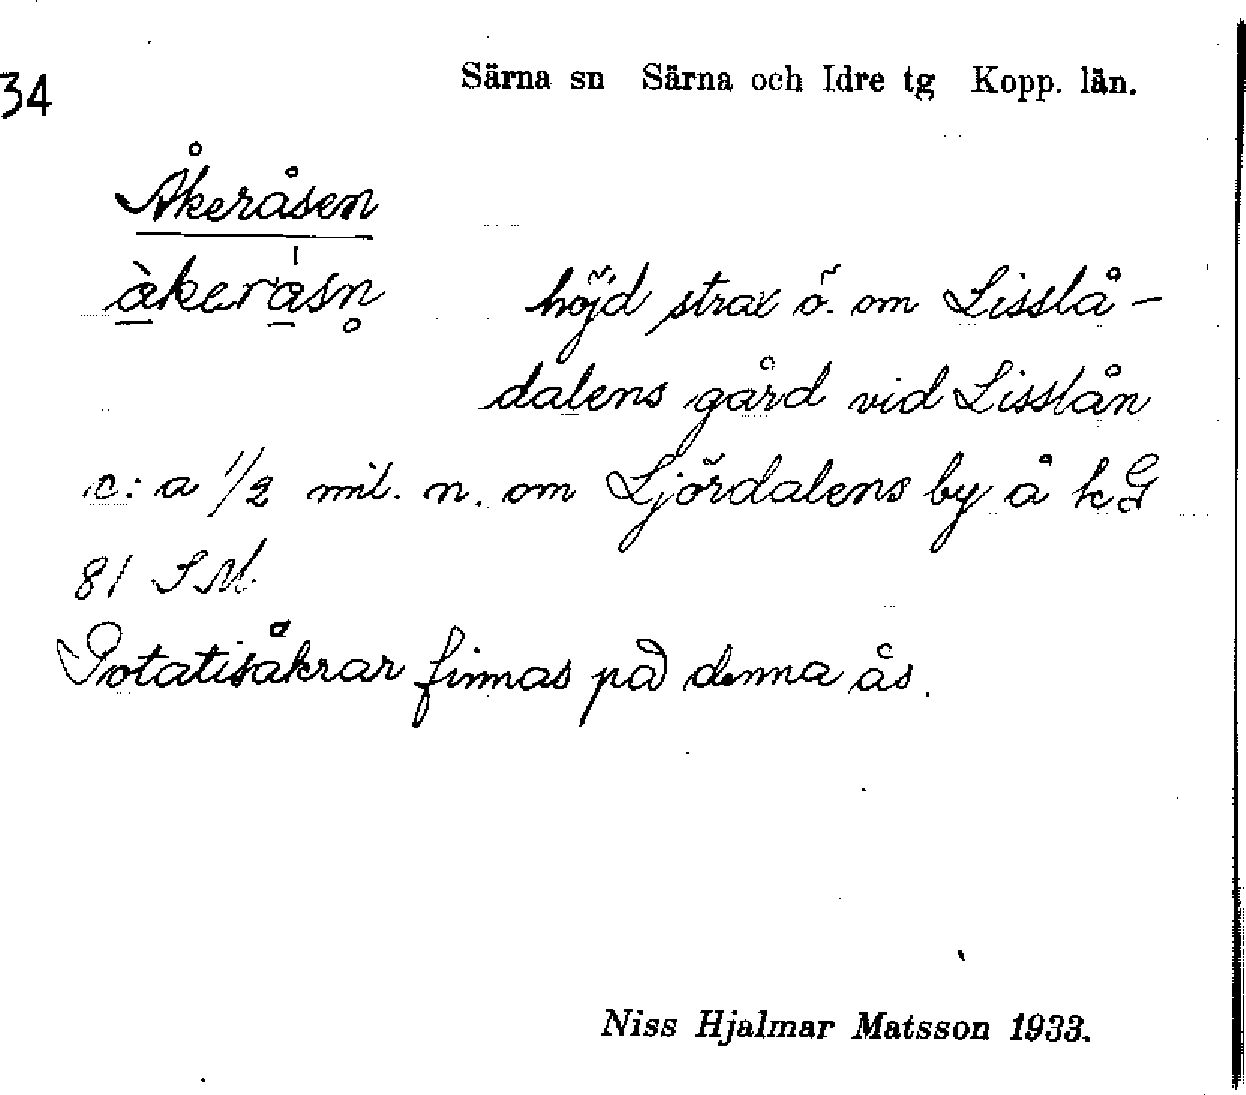 34
Särna sn Särna och Idre tg Kopp. län.
Åkeråsen
àkerásn̥
höjd strax ö. om Lisslå-
dalens gård vid Lisslån
c:a 1/2 mil. n. om Ljördalens by å k G
81 SM
Potatisåkrar finnas på denna ås.
Niss Hjalmar Matsson 1933.